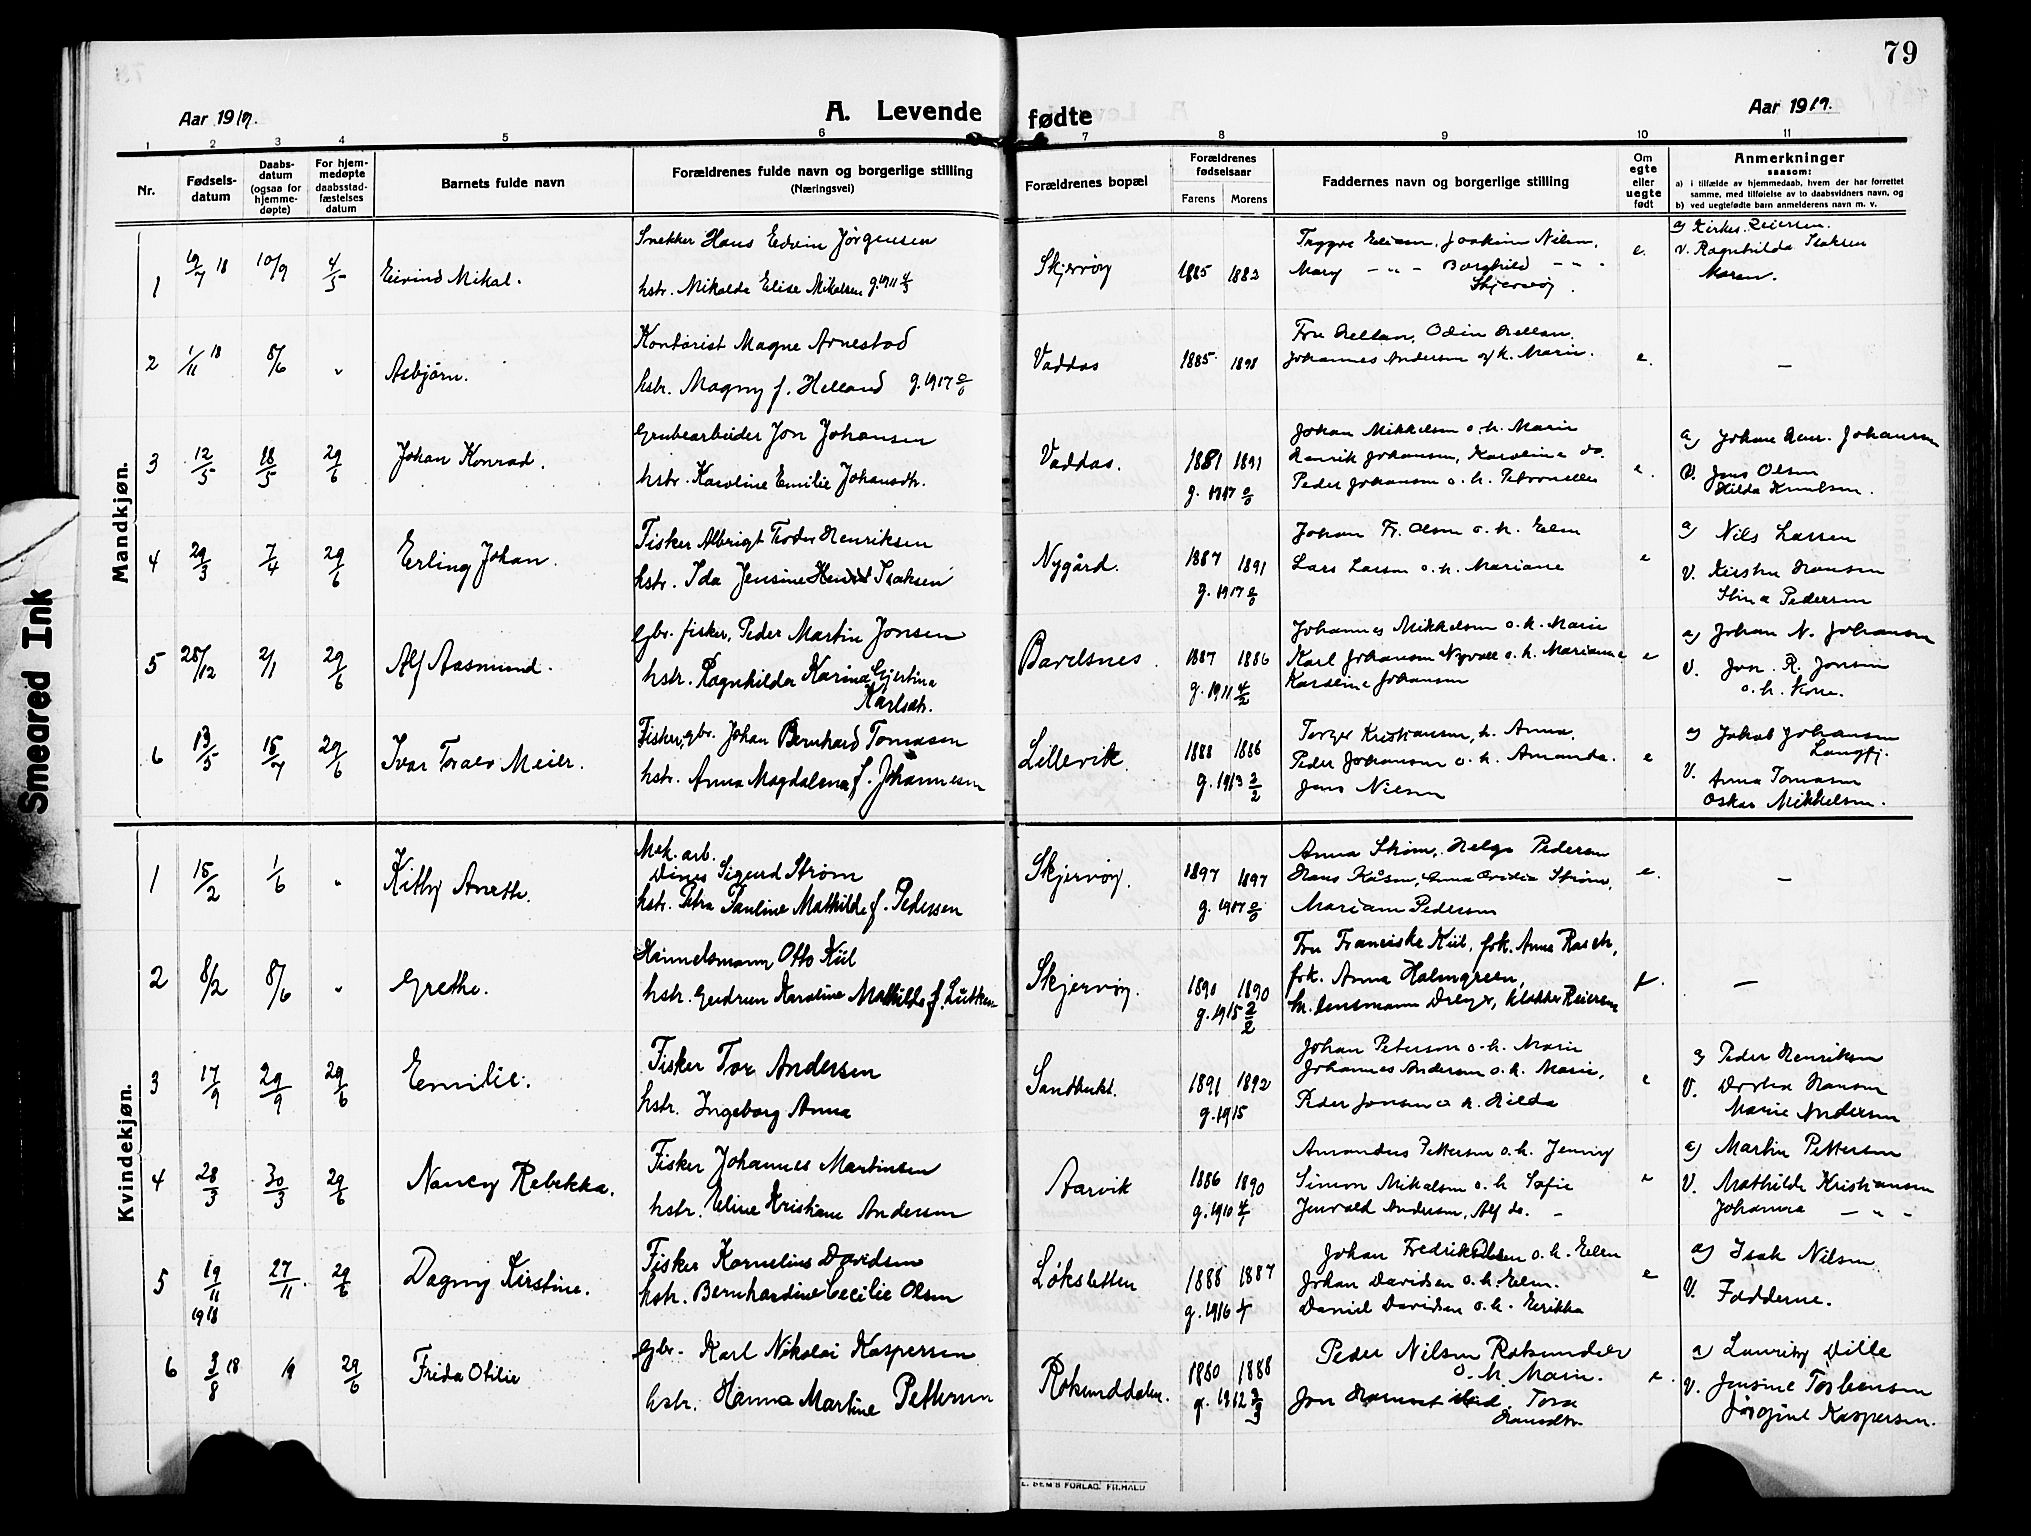 79
Aar 1919.
A. Levende fødte
Aar 1919.
1 2 3 4 5 6 7 8 9 10 11
Nr.
Fødsels-
datum
Daabs-
datum
(ogsaa for
hjemme-
døpte)
For hjem-
medøpte
daabsstad-
fæstelses
datum
Barnets fulde navn
Forældrenes fulde navn og borgerlige stilling
(Næringsvei)
Forældrenes bopæl
Forældrenes
fødselsaar
Farens Morens
Faddernes navn og borgerlige stilling
Om
egte
eller
uegte
født
Anmerkninger
saasom:
a) i tilfælde av hjemmedaab, hvem der har forrettet
samme, med tilføielse av to daabsvidners navn, og
b) ved uegtefødte barn anmelderens navn m. v.
Mandkjøn.
1 19/7 18 10/9 4/5 Eivind Mikal.
Snekker Hans Edvin Jørgensen
hstr. Mikalda Elise Mikalsen g. 1911 4/3
Skjervøy 1885 1882
Trygve Eliasen, Joakim Nilsen,
Mary — " — Borghild — " —
Skjervøy.
e.
a) Kirkes. Reiersen.
v. Ragnhilda Isaksen
Maren.
2 1/11 18 8/6 " Asbjørn.
Kontorist Magne Arnestad
hstr. Magny f. Helland g. 1917 0/0
Vaddas 1885 1898
Fru Helland, Odin Helland,
Johannes Andersen og h. Marie.
e. —
3 12/5 18/5 29/6 Johan Konrad.
Grubearbeider Jon Johansen
hstr. Karoline Emilie Johansdtr.
Vaddas. 1881 1891
g. 1917 0/0
Johan Mikkelsen o. h. Marie
Henrik Johansen, Karoline do.
Peder Johansen o. h. Petronelle
e.
a) Johan Henr. Johansen
V. Jens Olsen
Hilda Knutsen.
4 29/3 7/4 29/6 Erling Johan.
Fisker Albrigt Teodor Henriksen
hstr. Ida Jensine Isaksen
Nygård. 1887 1891
g. 1917 0/0
Johan Fr. Olsen o. h. Elen
Lars Larsen o. h. Mariane
e
a) Nils Larsen
V. Kirsten Hansen
Stina Pedersen
5 28/12 2/1 29/6 Alf Aasmund.
Gbr. fisker, Peder Martin Jonsen
hstr. Ragnhilda Karina Gjertine
Karlsdtr.
Bavelsnes. 1887 1886
g. 1911 4/2
Johannes Mikkelsen o. h. Marie
Karl Johansen Nyvoll o. h. Mariane
Karoline Johansen
e
a) Johan N. Johansen
V. Jon. R. Jonsen
o. h. Kone.
6 13/5 15/7 29/6 Ivar Toralv Meier.
Fisker, gbr. Johan Bernhard Tomasen
hstr. Anna Magdalena f. Johannesen
Lillevik. 1888 1886
g. 1913 2/2
Torger Kristiansen, h. Anna,
Peder Johansen o. h. Amanda.
Jens Nilsen
e
a) Jakob Johansen
Langfj.
V. Anna Tomasen
Oskar Mikkelsen.
Kvindekjøn.
1 15/2 1/6 " Kitty Anethe.
Mek. arb.
Dines Sigurd Strøm
hstr. Petra Pauline Mathilde f. Pedersen
Skjervøy. 1897 1897
g. 1917 0/0
Anna Strøm, Helga Pedersen
Hans Kåsen, Anna Ovidia Strøm,
Mariann Pedersen
e. —
2 8/2 8/6 " Grethe.
Handelsmann Otto Kiil
hstr. Gudrun Karoline Mathilde f. Lütken
Skjervøy. 1890 1890
g. 1915 2/2
Fru Franciske Kiil, frk. Anna Rasch,
frk. Anna Holmgreen,
hr. lensmann Dreyer, klokker Reiersen
e. —
3 17/9 29/9 29/6 Emilie.
Fisker Tor Andersen
hstr. Ingeborg Anna
Sandbukt. 1891 1892
g. 1915
Johan Peterson o. h. Marie
Johannes Andersen o. h. Marie,
Peder Jonsen o. h. Hilda
e
a) Peder Henriksen
V. Dortea Hansen
Marie Andersen
4 28/3 30/3 29/6 Nancy Rebekka.
Fisker Johannes Martinsen
hstr. Eline Kristiane Andersen
Aarvik 1886 1890
g. 1910 4/7
Amandus Pettersen o. h. Jenny
Simon Mikalsen o. h. Sofie
Jenvald Andersen, Alf do. —
e
a) Martin Pettersen
V. Mathilde Kristiansen
Johanna — " —
5 19/11 1918 27/11. 29/6 Dagny Kirstine.
Fisker Kornelius Davidsen
hstr. Bernhardine Cecilie Olsen
Løksletten 1888 1887
g. 1916
Johan Fredrik Olsen o. h. Elen
Johan Davidsen o. h. Elen.
Daniel Davidsen o. h. Erikka
e
a) Isak Nilsen
V. Fadderne.
6 3/8 18 19 29/6 Frida Otilie
Gbr. Karl Nikolai Kaspersen
hstr. Hanna Martine Pettersen
Rakunddalen. 1880 1888
g. 1912 3/3
Peder Nilsen Raksundalen
o. h. Marie.
Jon Hansdtr.
e.
a) Lauritz Dille
V. Jensine Torbensen
Jørgine Kaspersen.
Smeared Ink
E. SEM'S FORLAG. FR.HALD